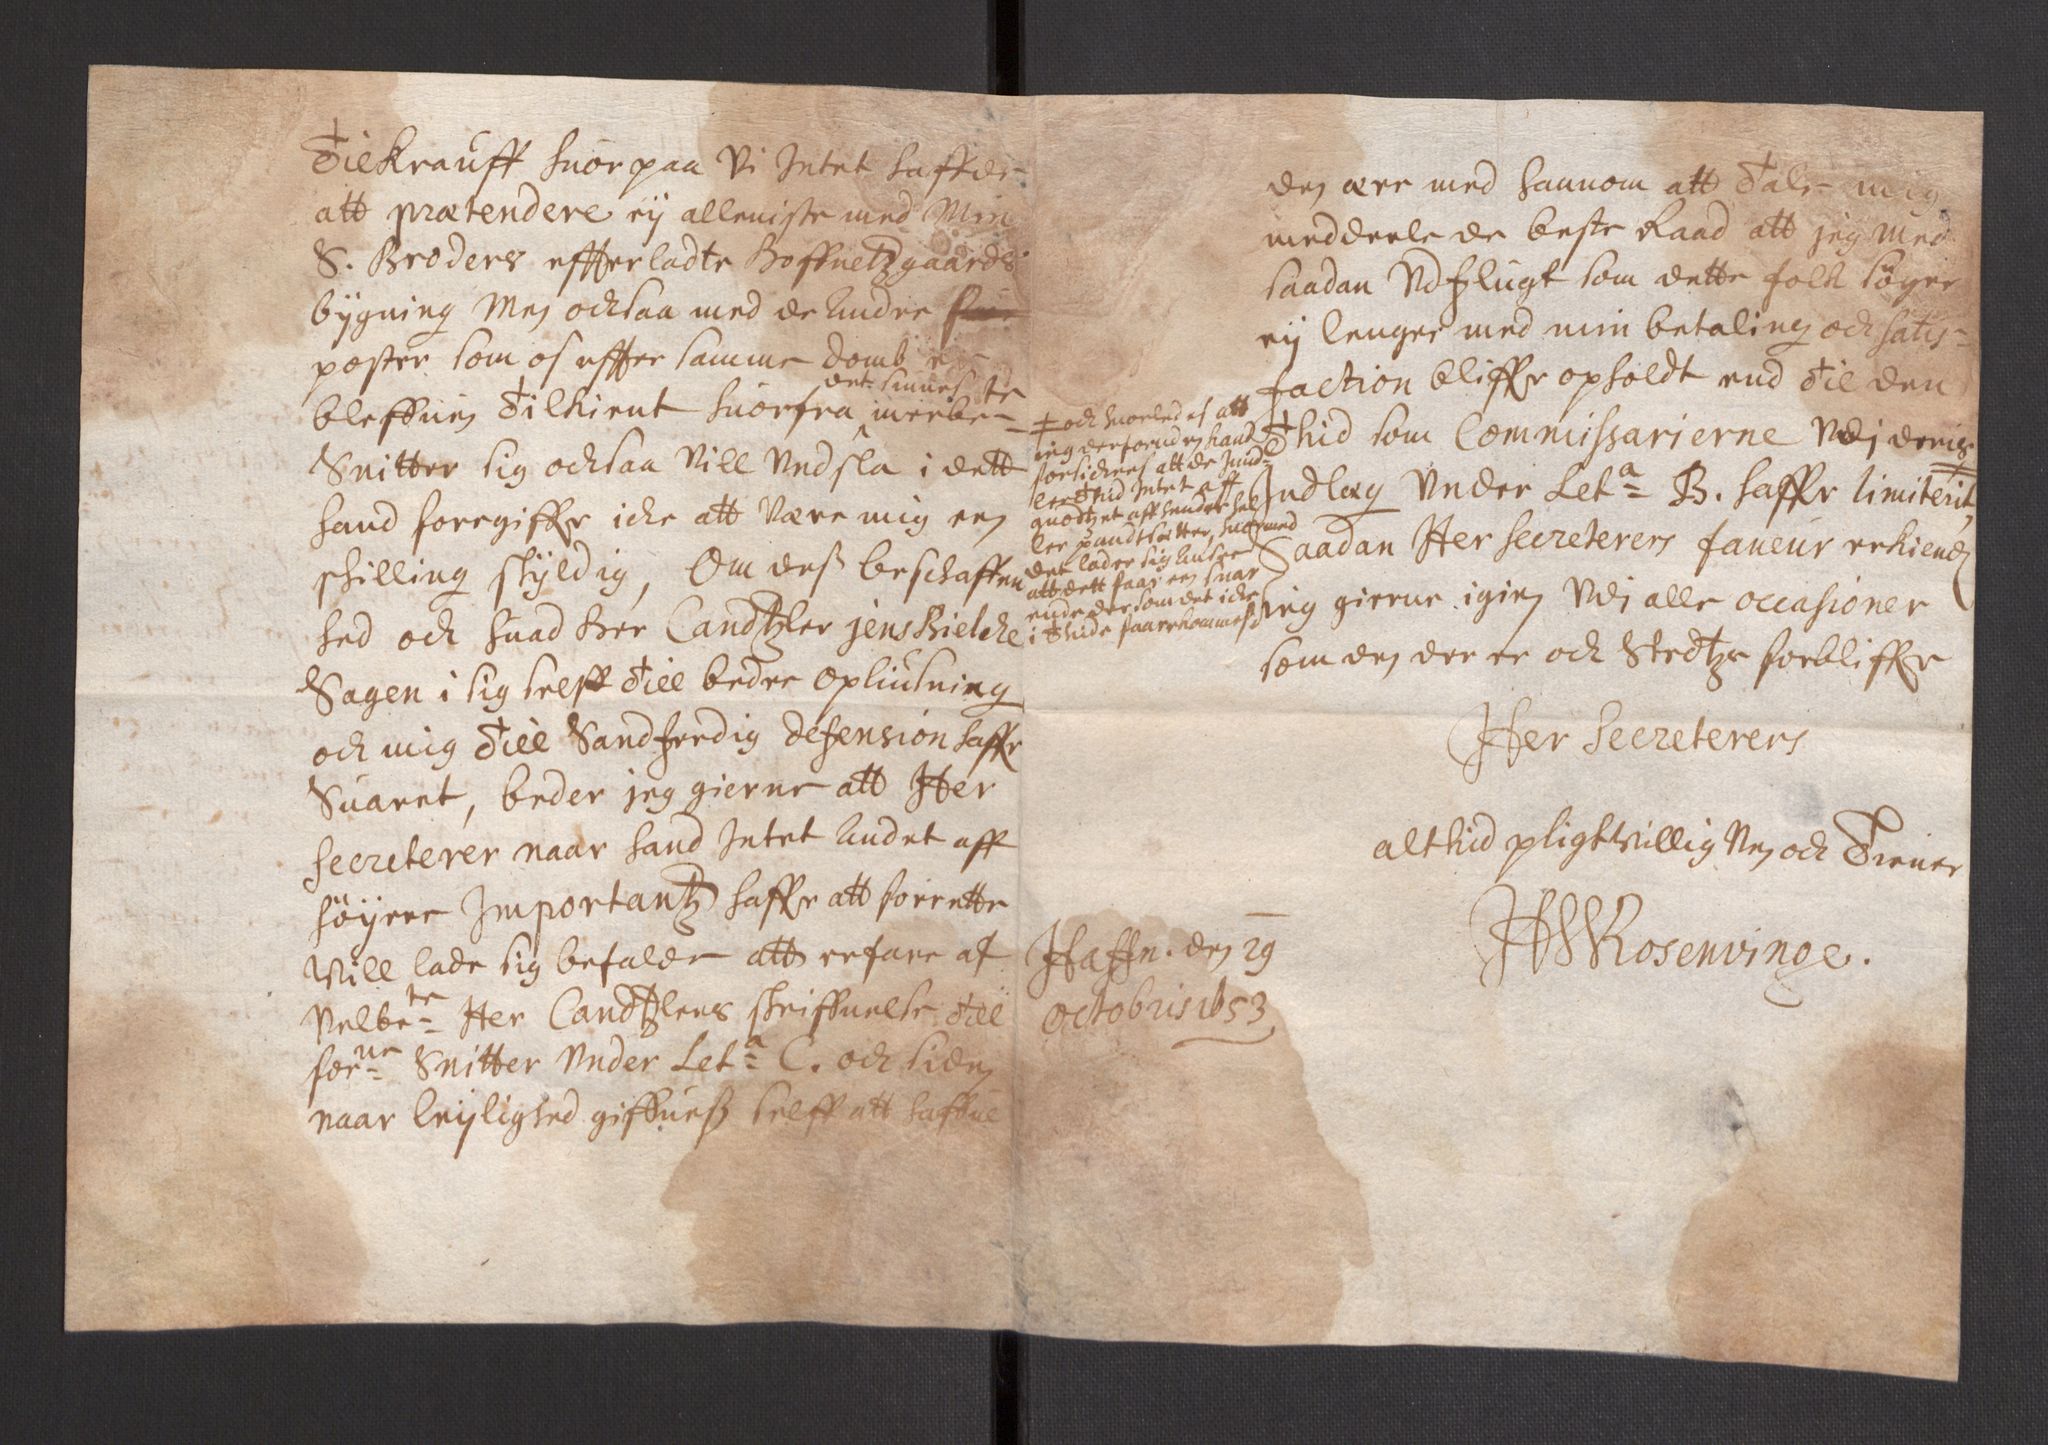 Tilkrauff huorpaa Vi Intet haffde
att prætendere eÿ alleniste med Min
S. Broders effterladte Boffuetzgaards
bÿgning Men ochsaa med de Andre
poster som os effter samme domb er
bleffuen Tilkient huorfra det sinnes meerbete
Snitter sig ochsaa Vill Vndsla i dett
hand foregiffr iche att Være mig een
skilling skÿldig, Om dess beschaffen
hed och huad Her Candtzler jens Bielche
Sagen i sig selff Till bedre Opliusning
och mig Till Sandferdig defension haffr
Suaret, beder jeg gierne att Her
Secreterer naar hand Intet Andet aff
höÿere Importantz haffr att forrette
Will lade sig befalde att erfare af
Velbete Her Candtzlers skriffuelse Till
forne Snitter Vnder Leta C. och siden
naar leÿlighed giffuess selff att haffue
‡ och huorledes att
jeg derforuden kand
forsichres att de Imid-
ler Thid Intet aff
guodtzet affhender hel
ler pandtsetter, huormed
det lader sig Ansee
att dett faar en snar
ende dersom det iche
i Thide faarekommes
den ære med hannom att Tale mig
meddeele de beste Raad att jeg med
saadan Vdflugt som dette folk söger
eÿ lenger med min betaling och satis-
faction bliffr opholdt end Til den
Thid som Commissarierne Vdj deris ‡
Indlæg Vnder Leta B. haffr limiterit,
Saadan Her Secreterers faueur erkiend
jeg gierne igien Vdj alle occasioner
som den der er och Stedtze forbliffr
Her Secreterers
althid pligtvillig Ven och Tiener
HWRosenvinge.
Haffn. den 29
Octobris 1653